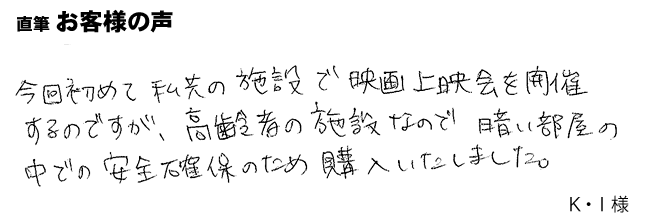 直筆 お客様の声
今回初めて私共の施設で映画上映会を開催
するのですが、高齢者の施設なので暗い部屋の
中での安全確保のため購入いたしました。
K・I 様